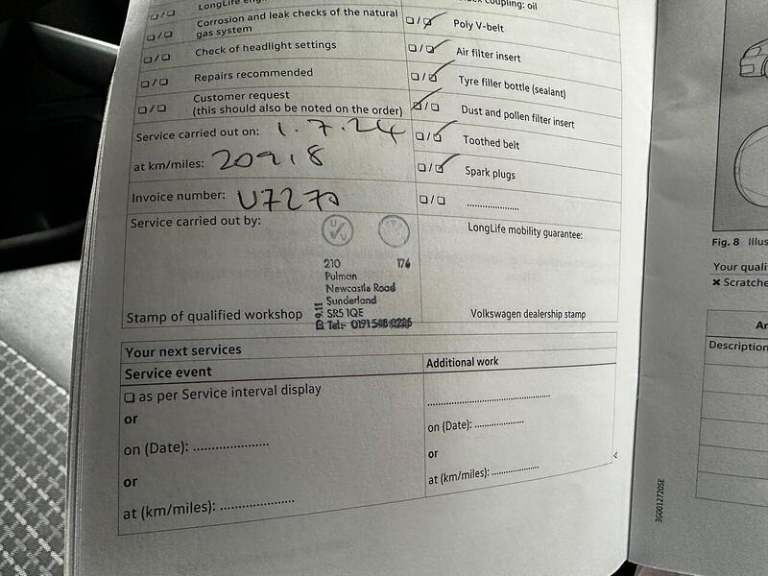 coupling: oil
Corrosion and leak checks of the natural
gas system
Poly V-belt
Check of headlight settings
Air filter insert
Repairs recommended
Tyre filler bottle (sealant)
Customer request
(this should also be noted on the order)
Dust and pollen filter insert
Service carried out on: 1.7.24
Toothed belt
at km/miles: 20918
Spark plugs
Invoice number: U7270
....................
Service carried out by:
LongLife mobility guarantee:
210 176
Pulman
Newcastle Road
Sunderland
SR5 1QE
Tel:- 0191 548
Stamp of qualified workshop
Volkswagen dealership stamp
Your next services
Service event
Additional work
as per Service interval display
or
on (Date): ....................
on (Date): ....................
or
or
at (km/miles): ....................
at (km/miles): ....................
Fig. 8
Your quali
× Scratche
Description
3G0012720SE